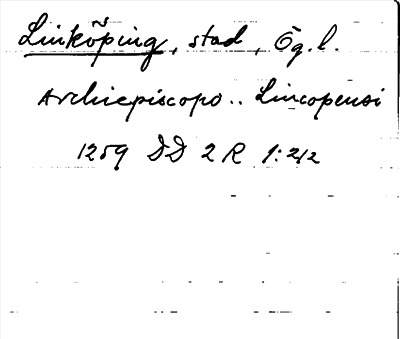 Linköping, stad, Ög. l.
Archiepiscopo.. Lincopensi
1259 DD 2 R 1:212